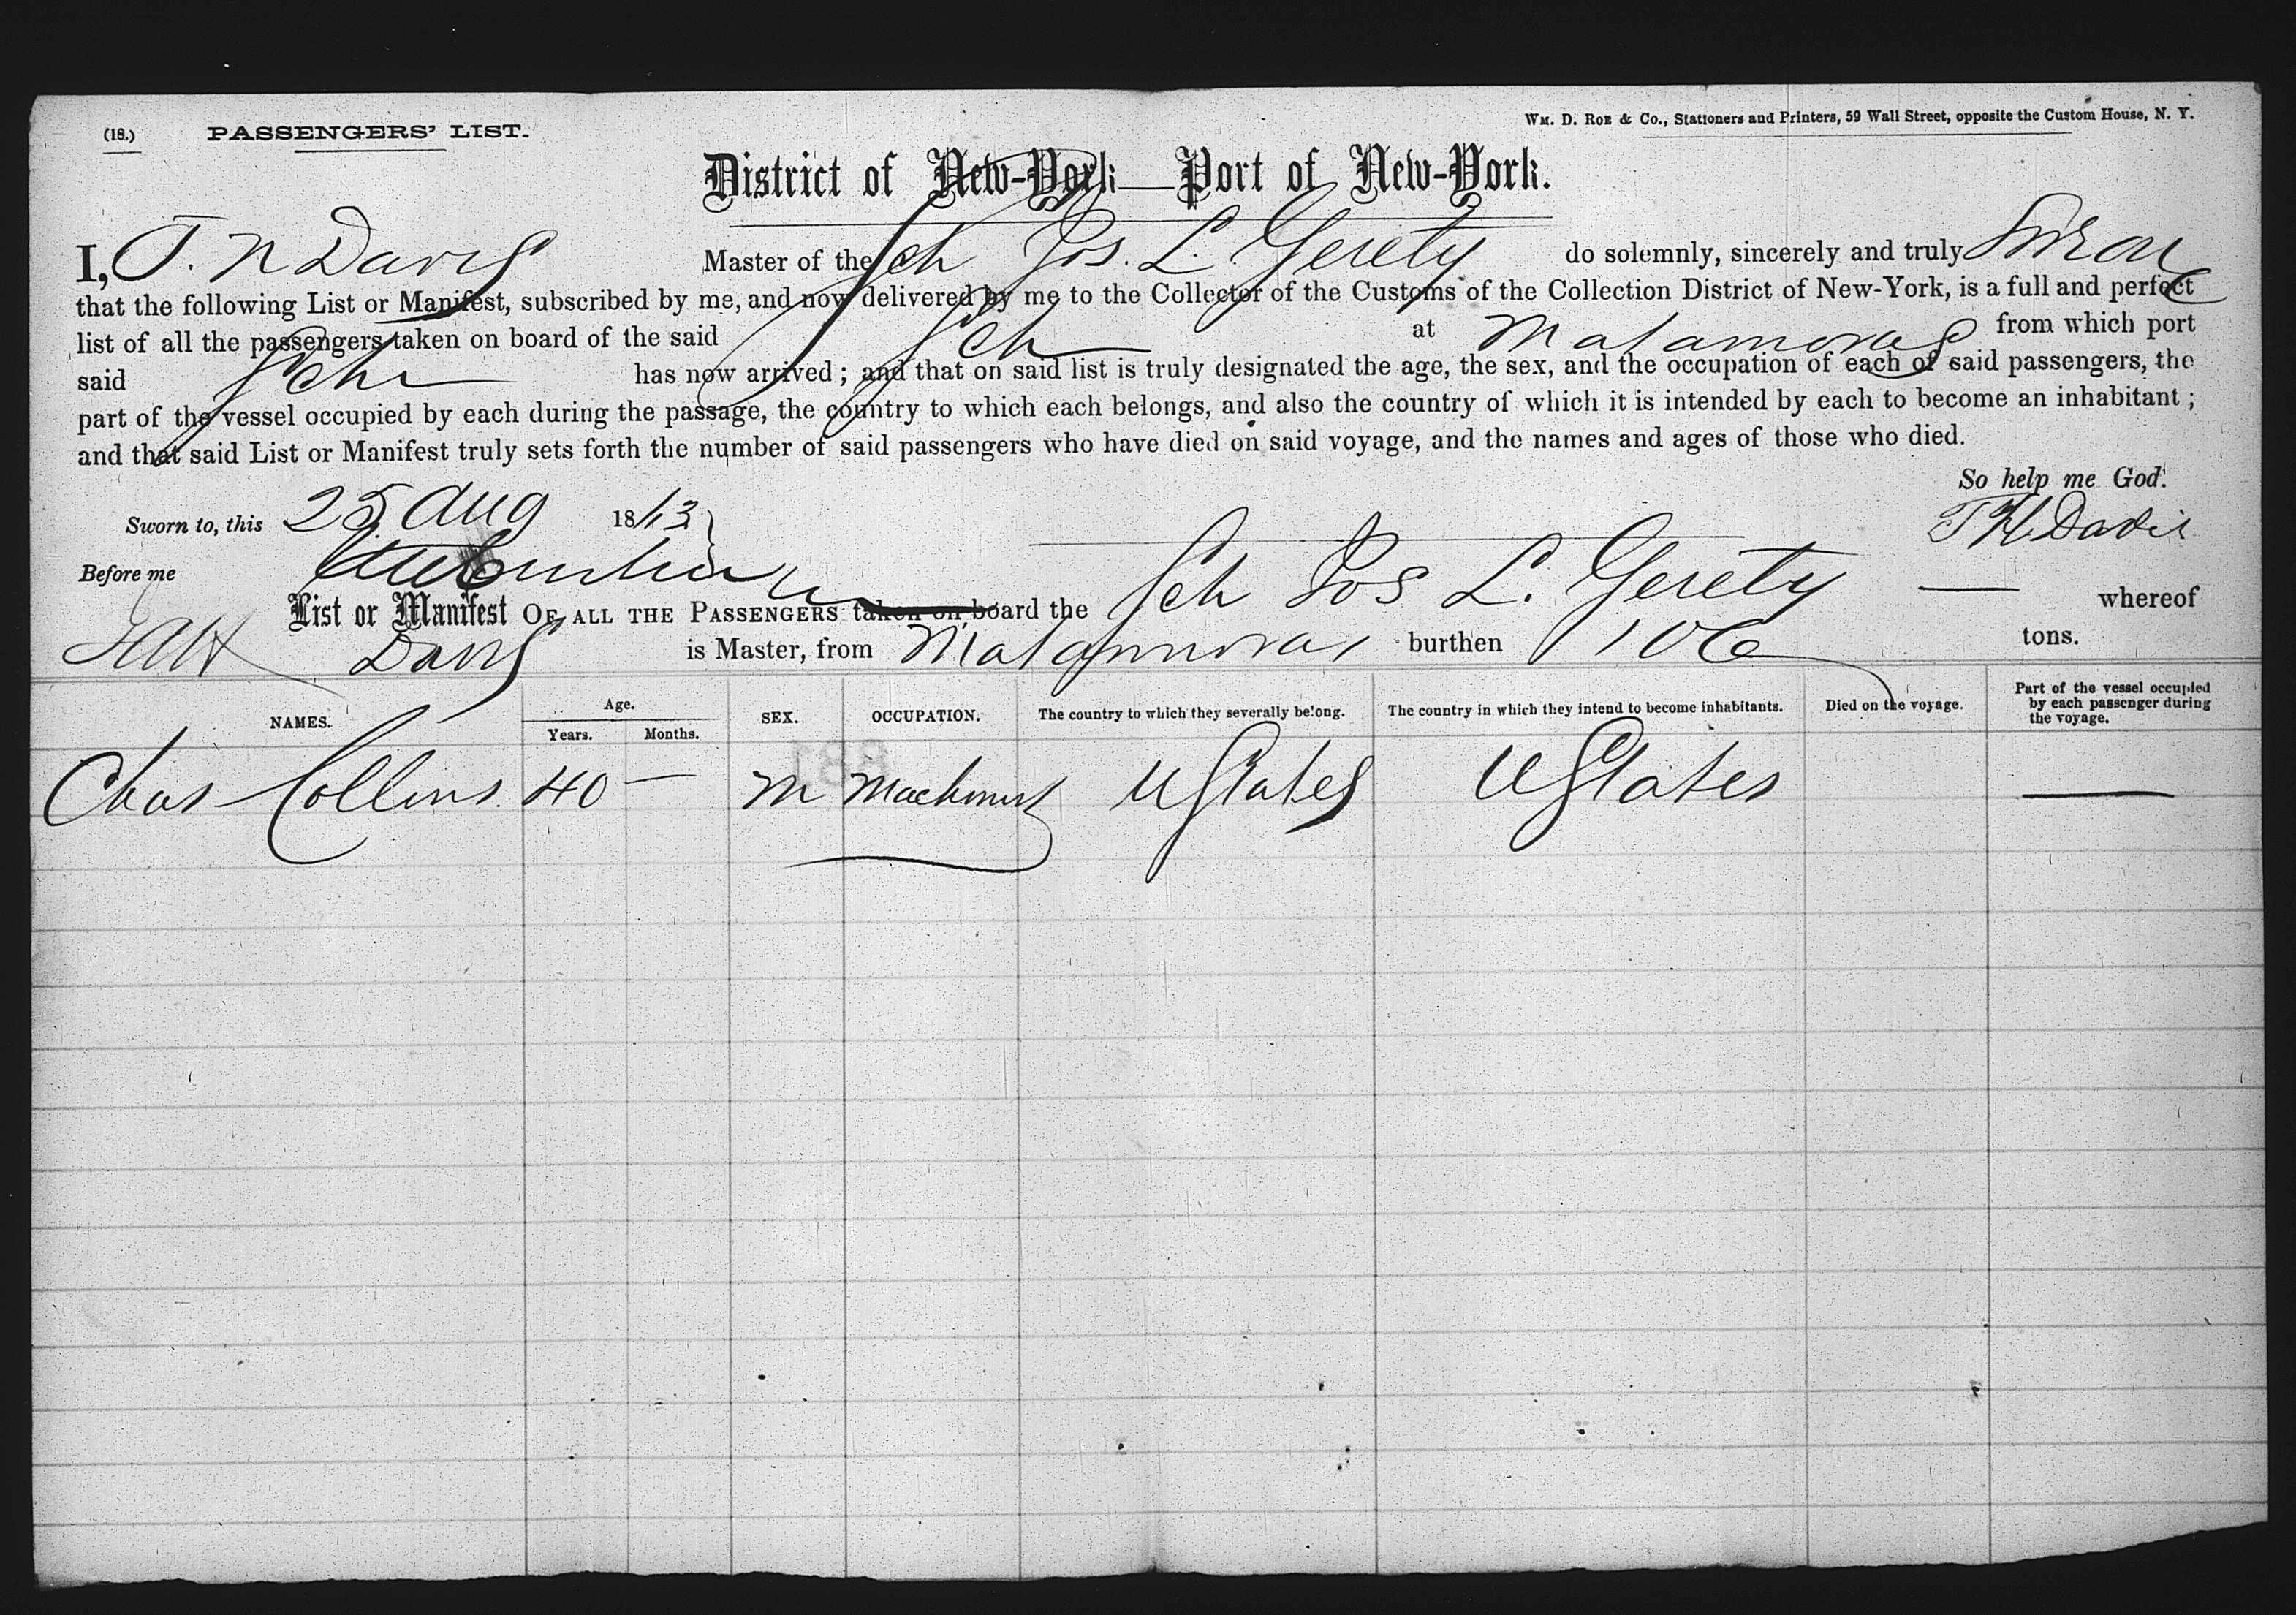 (18.) PASSENGERS' LIST. Wm. D. Roe & Co., Stationers and Printers, 59 Wall Street, opposite the Custom House, N. Y.
District of New-York—Port of New-York.
I, T. N Davis Master of the Sch Jos. L. Gerety do solemnly, sincerely and truly Swear
that the following List or Manifest, subscribed by me, and now delivered by me to the Collector of the Customs of the Collection District of New-York, is a full and perfect
list of all the passengers taken on board of the said Sch at Matamoras from which port
said Schr has now arrived; and that on said list is truly designated the age, the sex, and the occupation of each of said passengers, the
part of the vessel occupied by each during the passage, the country to which each belongs, and also the country of which it is intended by each to become an inhabitant;
and that said List or Manifest truly sets forth the number of said passengers who have died on said voyage, and the names and ages of those who died.
So help me God.
Sworn to, this 25 Aug 18 Davis
Before me
List or Manifest OF ALL THE PASSENGERS taken on board the Sch Jos L. Gerety — whereof
Davis is Master, from Matamoras burthen 106 tons.
NAMES. Age. Years. Months. SEX. OCCUPATION. The country to which they severally belong. The country in which they intend to become inhabitants. Died on the voyage. Part of the vessel occupied by each passenger during the voyage.
Chas Collins 40 — M Machinist U States U States —